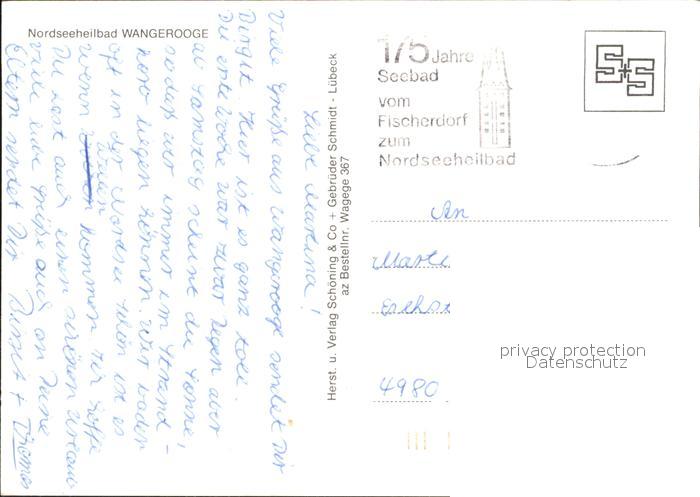 Nordseeheilbad WANGEROOGE
Liebe Martina!
Viele Grüße aus Wangerooge sendet Dir
Birgit. Hier ist es ganz toll.
Die erste Woche war zwar Regen aber
ab Samstag scheint die Sonne,
sodaß wir immer im Strand-
korb liegen können. Wir baden
oft in der Nordsee. Schön ist es
wenn Wellen kommen. Ich hoffe
Du hast auch einen schönen Urlaub.
Viele liebe Grüße auch an Deine
Eltern sendet Dir Birgit + Thomas
Herst. u. Verlag Schöning & Co + Gebrüder Schmidt - Lübeck
az Bestellnr. Wagege 367
175 Jahre
Seebad
vom
Fischerdorf
zum
Nordseeheilbad
S+S
An
4980
privacy protection
Datenschutz